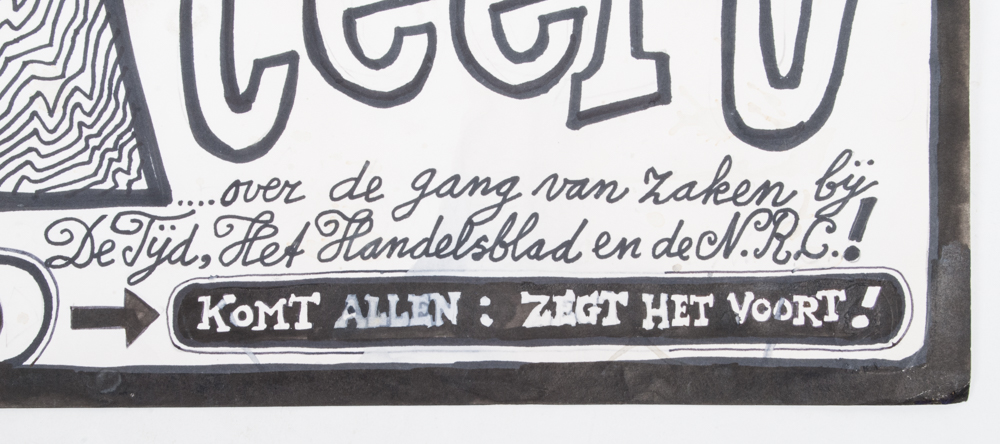 ....over de gang van zaken bij
De Tijd, Het Handelsblad en de N.R.C.!
KOMT ALLEN : ZEGT HET VOORT!